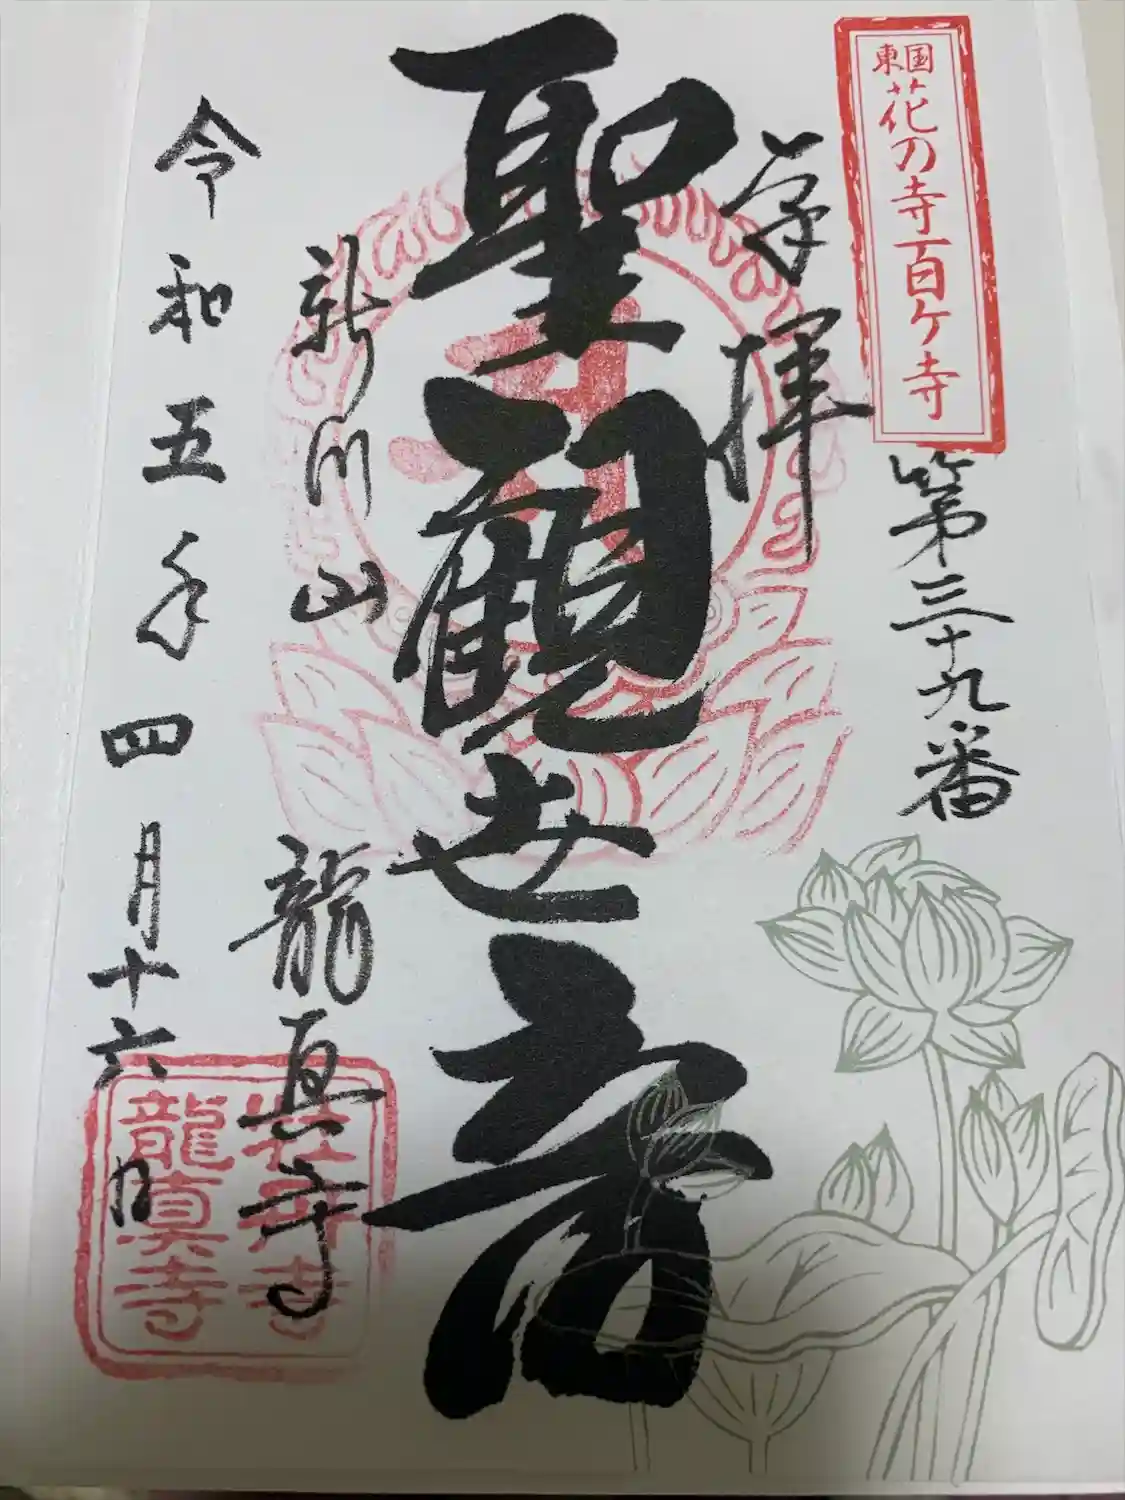 東国花の寺百ケ寺
第三十九番
拝
聖観世音
新川山
龍真寺
令和五年四月十六日
龍真寺